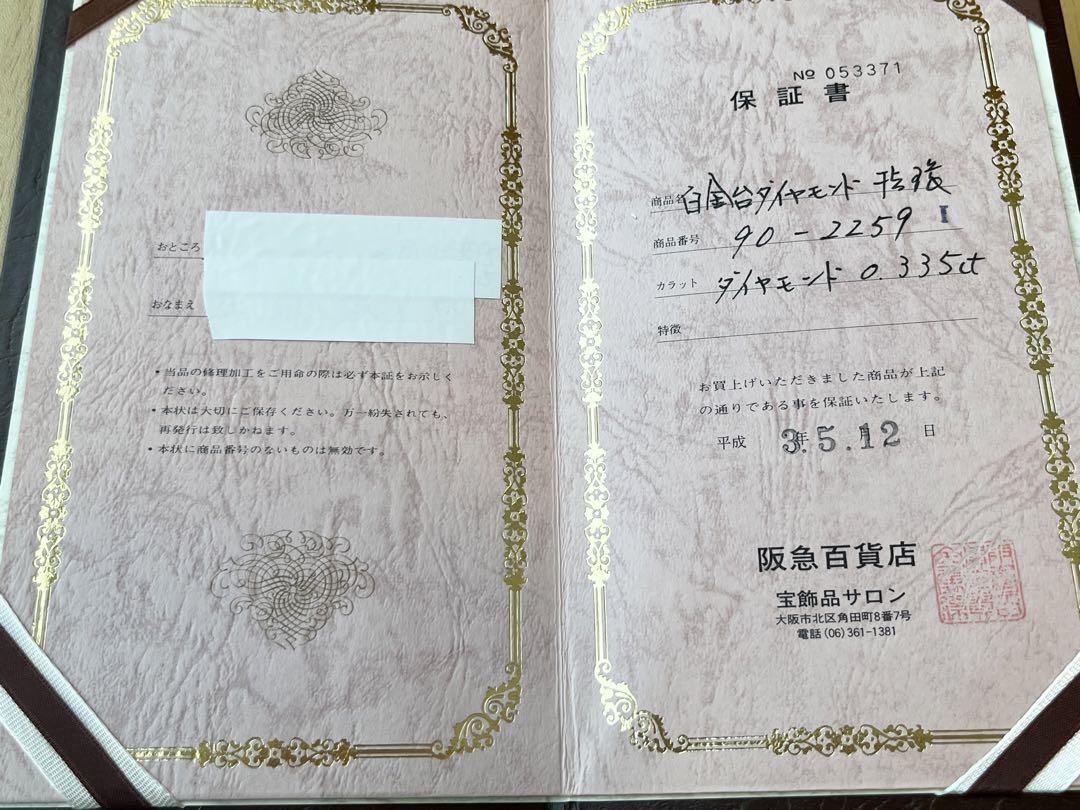 おところ
おなまえ
・当品の修理加工をご用命の際は必ず本証をお示しく
ださい。
・本状は大切にご保存ください。万一紛失されても、
再発行は致しかねます。
・本状に商品番号のないものは無効です。
№ 053371
保証書
商品名 白金台ダイヤモンド指環
商品番号 90-2259 I
カラット ダイヤモンド 0.335ct
特徴
お買上げいただきました商品が上記
の通りである事を保証いたします。
平成 3年5.12 日
阪急百貨店
宝飾品サロン
大阪市北区角田町8番7号
電話(06)361-1381